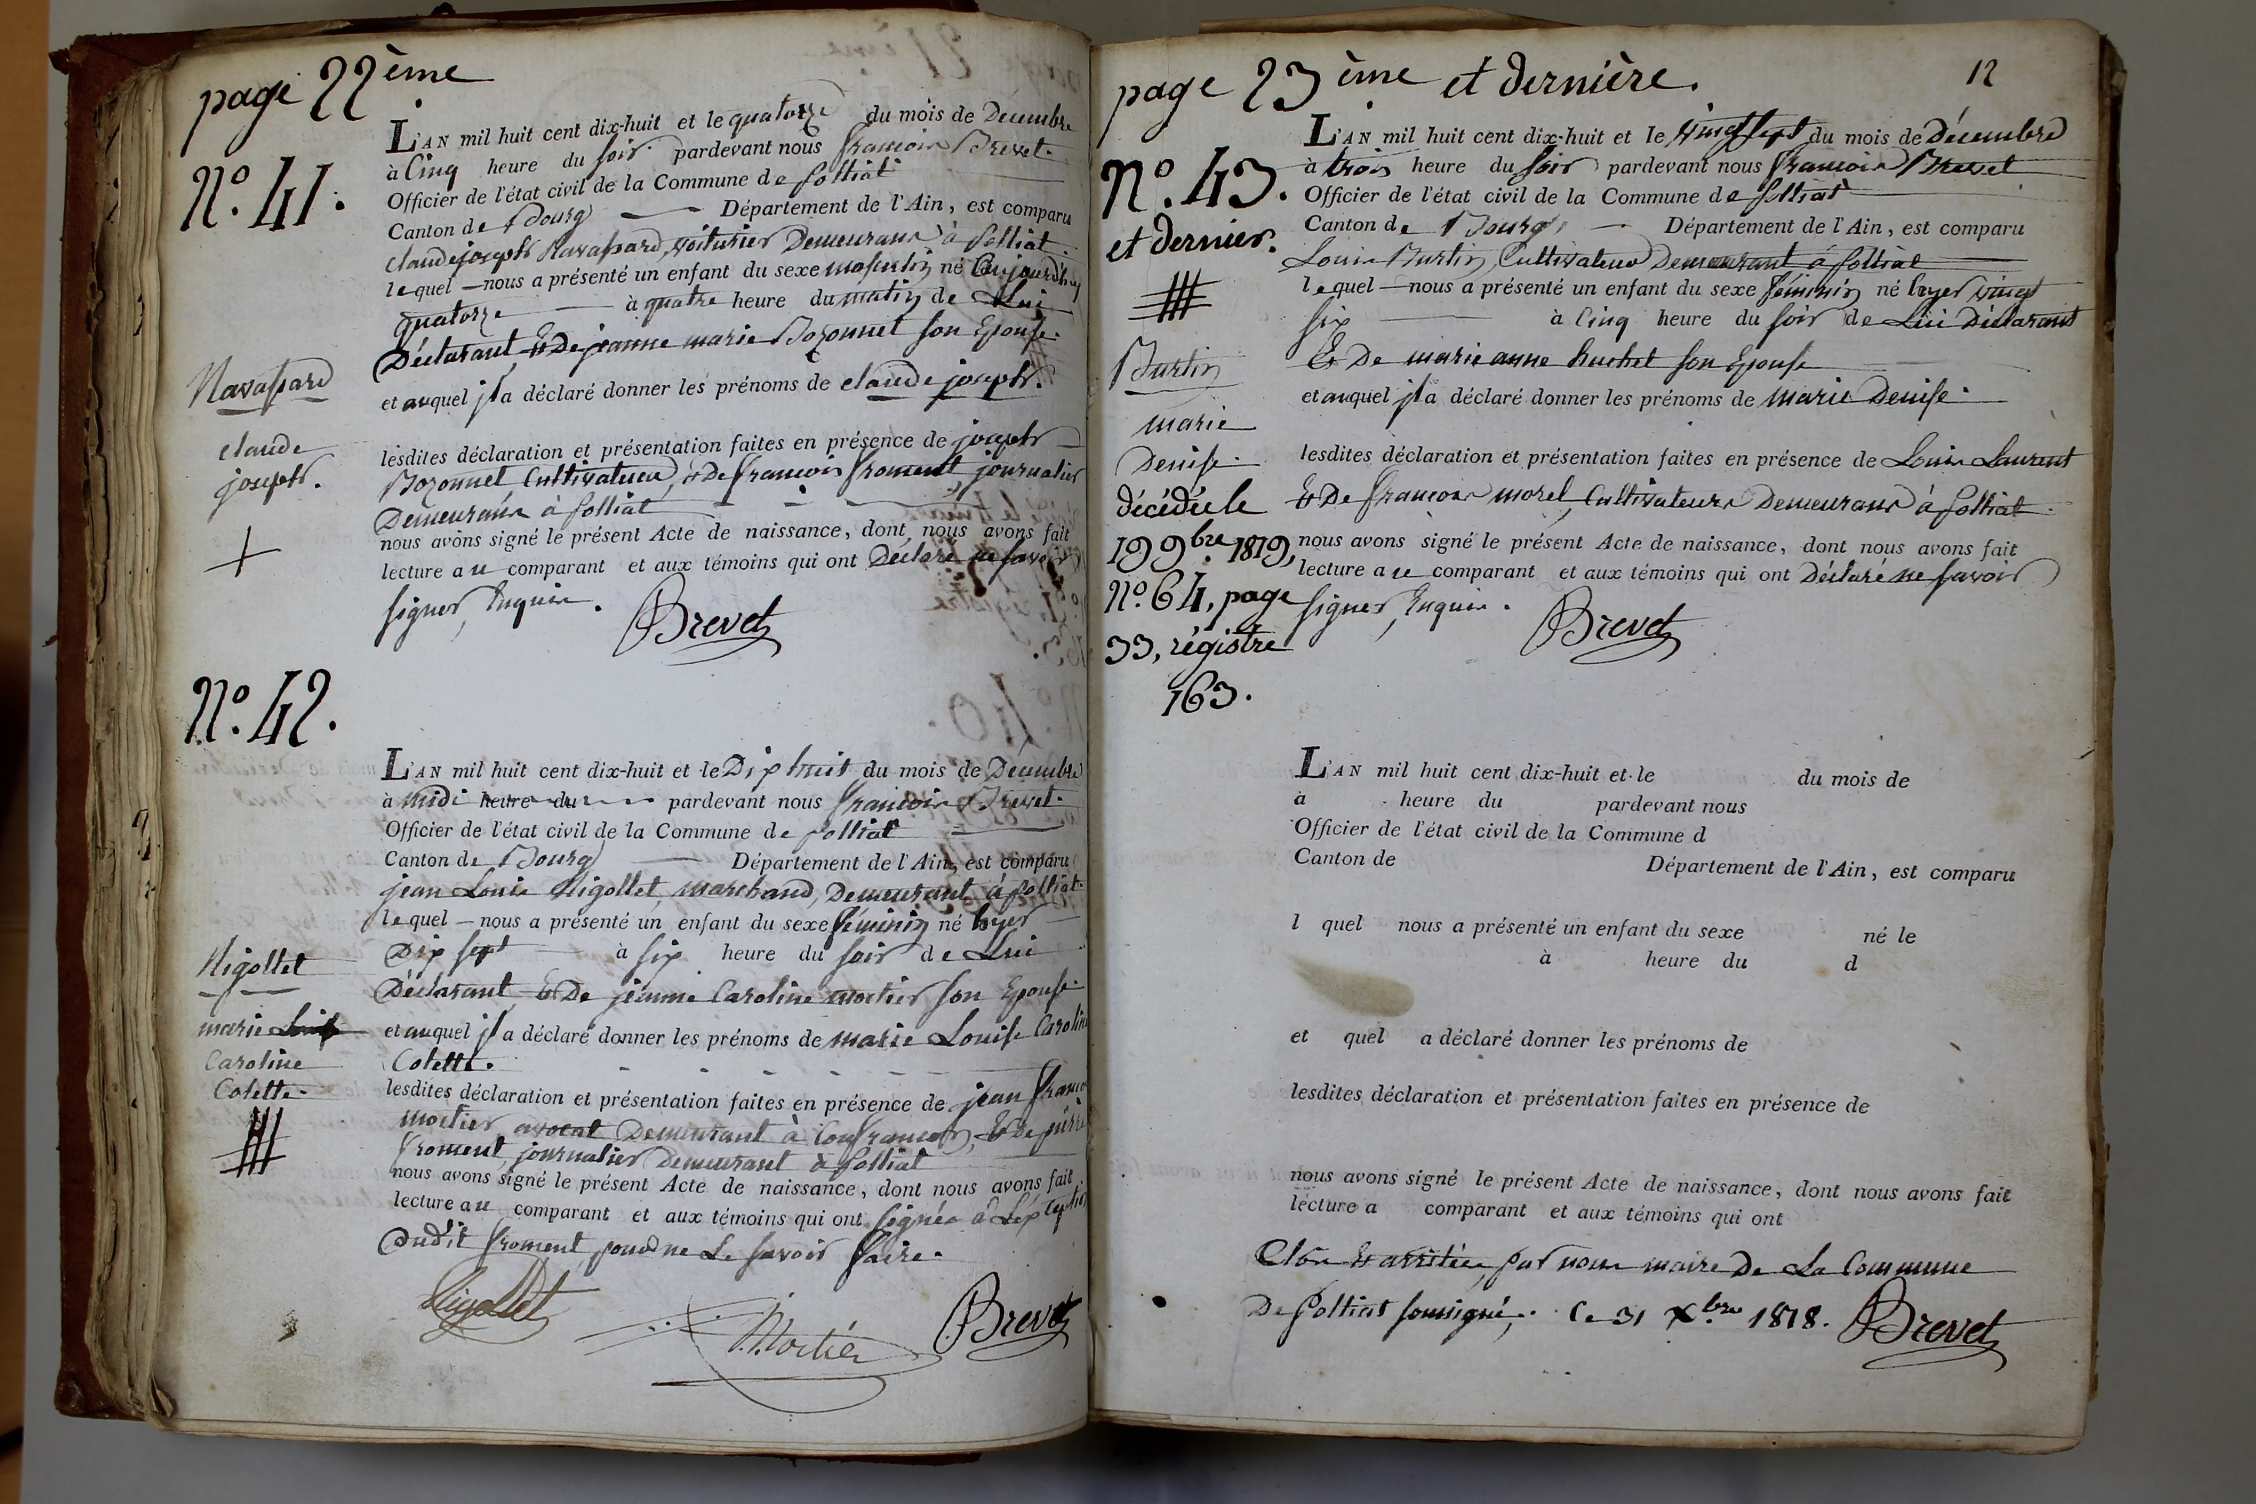 page 22ème
N.º 41.
L'AN mil huit cent dix-huit et le quatorze du mois de Décembre
à Cinq heure du soir pardevant nous françois Brevet.
Officier de l'état civil de la Commune de polliat
Canton de Bourg Département de l'Ain, est comparu
claude joseph Ravassard, voiturier Demeurant à polliat
lequel nous a présenté un enfant du sexe masculin né aujourd'huy
quatorze à quatre heure du matin de Lui
Déclarant, & De jeanne marie Bozonnet son Epouse
Ravassard
et auquel il a déclaré donner les prénoms de claude joseph.
claude
joseph.
lesdites déclaration et présentation faites en présence de joseph
Bozonnet Cultivateur, & De françois froment journalier
Demeurans à polliat
nous avons signé le présent Acte de naissance, dont nous avons fait
lecture au comparant et aux témoins qui ont Déclaré ne savoir
signer, Enquis.
Brevet
N.º 42.
L'AN mil huit cent dix-huit et le Dix huit du mois de Décembre
à midi heure du pardevant nous françois Brevet.
Officier de l'état civil de la Commune de polliat
Canton de Bourg Département de l'Ain, est comparu
jean Louis Rigollet, marchand, Demeurant à polliat.
lequel nous a présenté un enfant du sexe féminin né hyer
Dix sept à six heure du soir de Lui
Déclarant, & De jeanne Caroline mortier son Epouse.
Rigollet
marie Louise
Caroline
Colette.
et auquel il a déclaré donner les prénoms de marie Louise Caroline
Colette.
lesdites déclaration et présentation faites en présence de jean franç
mortier avocat Demeurant à Confrançon, & De pierre
froment, journalier Demeurant à polliat
nous avons signé le présent Acte de naissance, dont nous avons fait
lecture au comparant et aux témoins qui ont signés à L'exception
Dudit froment, pour ne Le savoir faire.
Rigollet
Mortier
Brevet
page 23 ème et dernière.
12
N.º 43.
et dernier.
L'AN mil huit cent dix-huit et le vingt sept du mois de Décembre
à trois heure du soir pardevant nous françois Brevet
Officier de l'état civil de la Commune de polliat
Canton de Bourg Département de l'Ain, est comparu
Louis Burtin, Cultivateur Demeurant à polliat
lequel nous a présenté un enfant du sexe féminin né hyer vingt
six à Cinq heure du soir de Lui Déclarant
& De marie anne huchet son Epouse
et auquel il a déclaré donner les prénoms de marie Denise.
Burtin
marie
Denise.
décédée le
19 9.bre 1819,
N.º 64, page
33, régistre
163.
lesdites déclaration et présentation faites en présence de Louis Laurent
& De françois morel, Cultivateurs Demeurans à polliat.
nous avons signé le présent Acte de naissance, dont nous avons fait
lecture au comparant et aux témoins qui ont Déclaré ne savoir
signer, Enquis.
Brevet
L'AN mil huit cent dix-huit et le du mois de
à heure du pardevant nous
Officier de l'état civil de la Commune d
Canton de Département de l'Ain, est comparu
l quel nous a présenté un enfant du sexe né le
à heure du d
et quel a déclaré donner les prénoms de
lesdites déclaration et présentation faites en présence de
nous avons signé le présent Acte de naissance, dont nous avons fait
lecture a comparant et aux témoins qui ont
Clos & arrêtée, par nous maire De La Commune
De polliat soussigné, Ce 31 X.bre 1818. Brevet